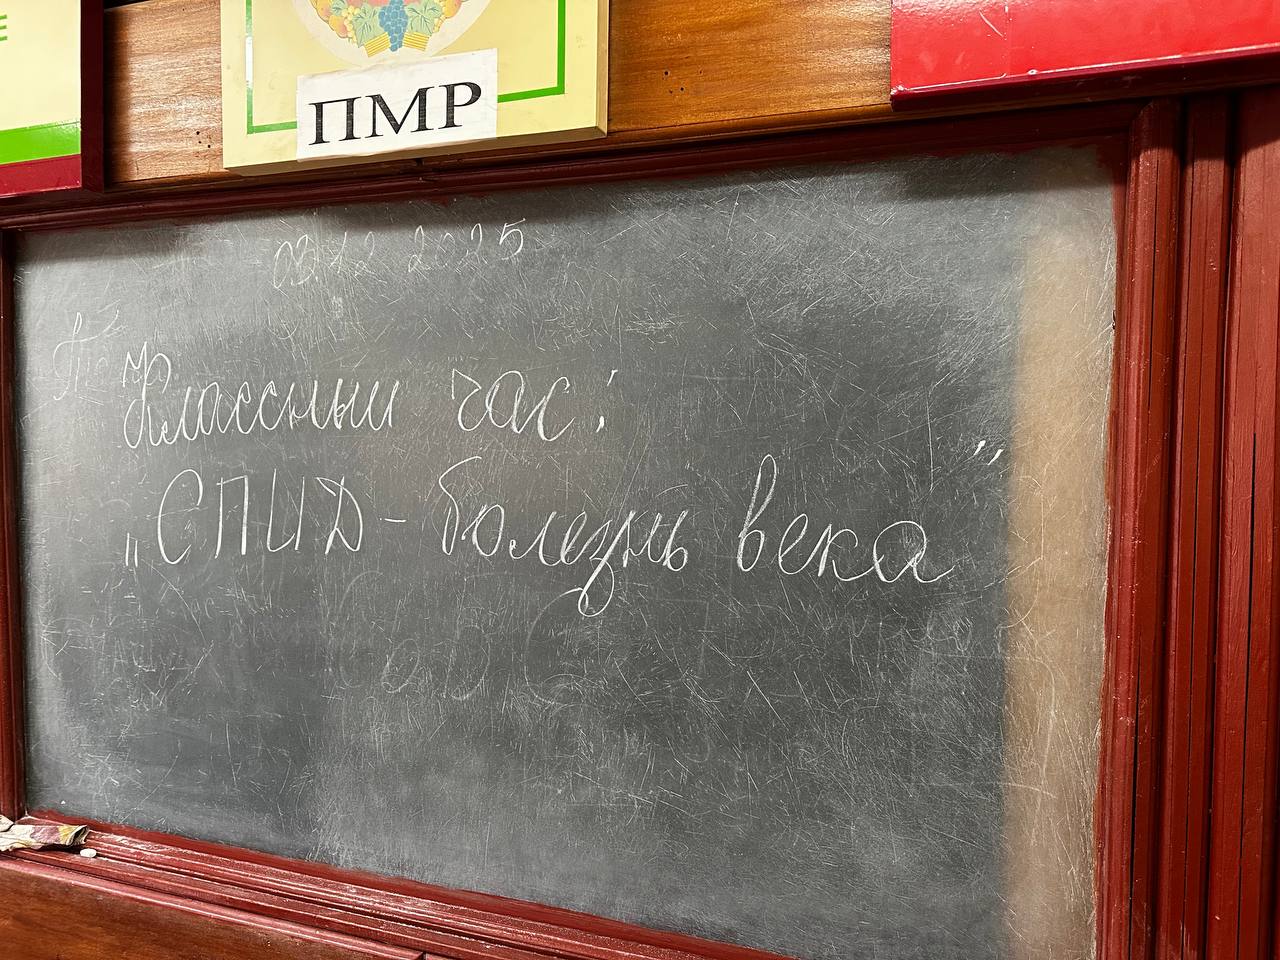 ПМР
03.12 2025
Классный час:
„СПИД - болезнь века”